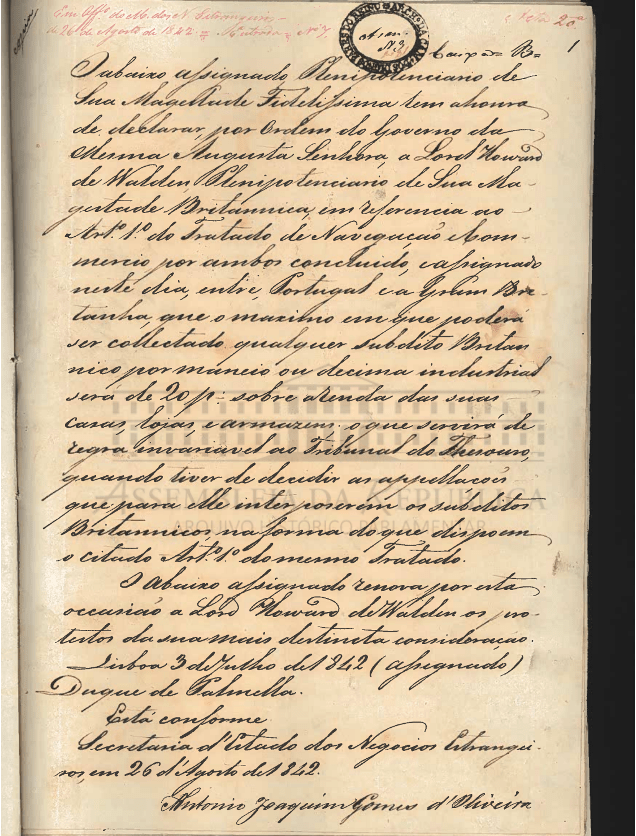 Em Off.º do M. dos N. Estrangeiros
de 26 de Agosto de 1842 = N.º 7
1
O abaixo assignado, Plenipotenciario de
Sua Magestade Fidelissima tem a honra
de, declarar, por Ordem do Governo da
Mesma Augusta Senhora, a Lord Howard
de Walden, Plenipotenciario de Sua Ma-
gestade Britannica, em referencia ao
Art.º 1.º do Tratado de Navegação e Com-
mercio por ambos concluido, e assignado
neste dia, entre, Portugal e a Gram Bre-
tanha, que o maximo em que poderá
ser collectado qualquer subdito Britan
nico por maneio ou decima industrial
será de 20 p.r sobre a renda das suas
casas, lojas, e armazens, o que servirá de
regra invariavel ao Tribunal do Thesouro,
quando tiver de decidir as appellacões
que para elle interposerem os subditos
Britannicos, na forma do que dispoem
o citado Art.º 1.º do mesmo Tratado.
O Abaixo assignado renova por esta
occasião a Lord Howard de Walden os pro-
testos da sua mais destincta consideração.
Lisboa 3 de Julho de 1842 (assignado)
Duque de Palmella.
Está conforme
Secretaria d'Estado dos Negocios Estrangei-
ros, em 26 d'Agosto de 1842.
Antonio Joaquim Gomes d'Oliveira
ASSEMBLEIA DA REPÚBLICA
ARQUIVO HISTÓRICO PARLAMENTAR